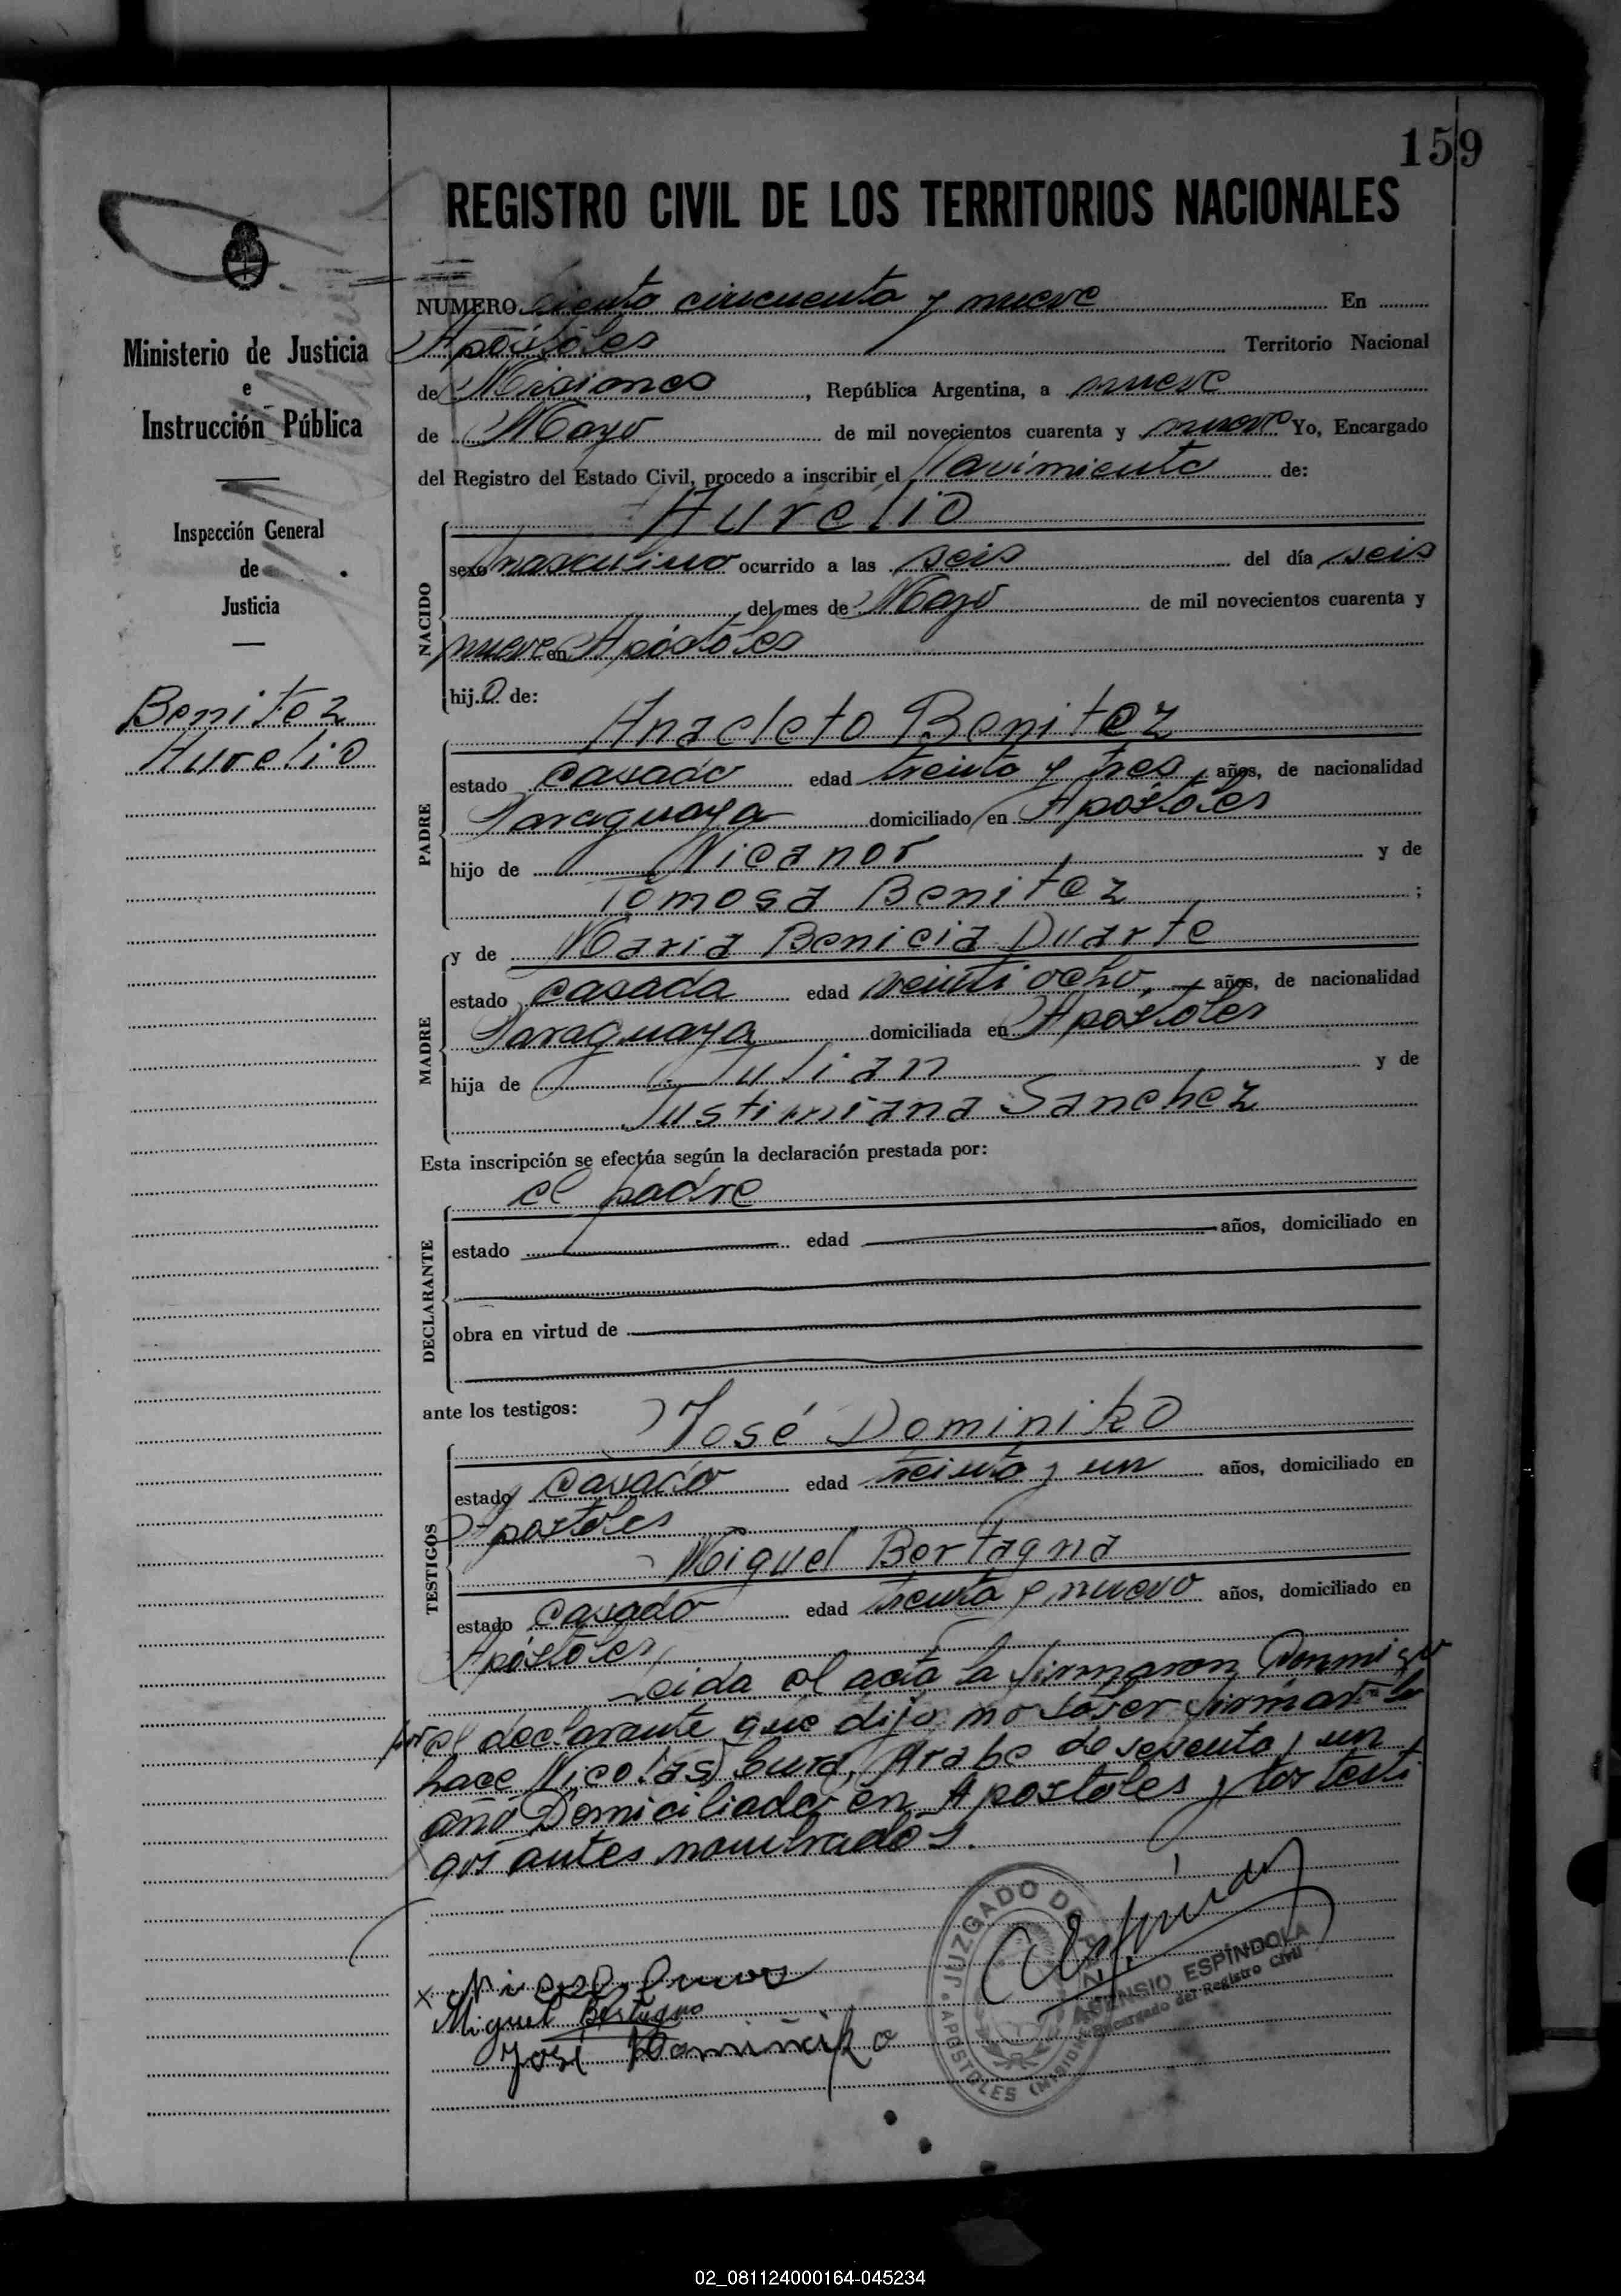 159
REGISTRO CIVIL DE LOS TERRITORIOS NACIONALES
Ministerio de Justicia
e
Instrucción Pública
Inspección General
de
Justicia
Benitez
Aurelio
NUMERO ciento cincuenta y nueve En
Apóstoles Territorio Nacional
de Misiones, República Argentina, a nueve
de Mayo de mil novecientos cuarenta y nueve Yo, Encargado
del Registro del Estado Civil, procedo a inscribir el Nacimiento de:
Aurelio
NACIDO
sexo masculino ocurrido a las seis del día seis
del mes de Mayo de mil novecientos cuarenta y
nueve en Apóstoles
hijo de:
Anacleto Benitez
PADRE
estado casado edad treinta y tres, años, de nacionalidad
Paraguaya domiciliado en Apóstoles
hijo de Nicanor y de
Tomasa Benitez ;
MADRE
y de Maria Benicia Duarte
estado casada edad veinti ocho, años, de nacionalidad
Paraguaya domiciliada en Apostoles
hija de Julian y de
Justiniana Sanchez
Esta inscripción se efectúa según la declaración prestada por:
el padre
DECLARANTE
estado edad años, domiciliado en
obra en virtud de
ante los testigos:
José Dominiko
TESTIGOS
estado casado edad treinta y un años, domiciliado en
Apostoles
Miguel Bertagna
estado casado edad treinta y nueve años, domiciliado en
Apóstoles
Leida el acta la firmaron conmigo
por el declarante que dijo no saber firmar lo
hace Nicolas Cura, Arabe de sesenta y un
año Domiciliado en Apostoles y los testi
gos antes nombrados.
Miguel Bertagna
José Dominiko
JUZGADO DE PAZ
APOSTOLES (MISIONES)
ASENSIO ESPÍNDOLA
Encargado del Registro Civil
02_081124000164-045234